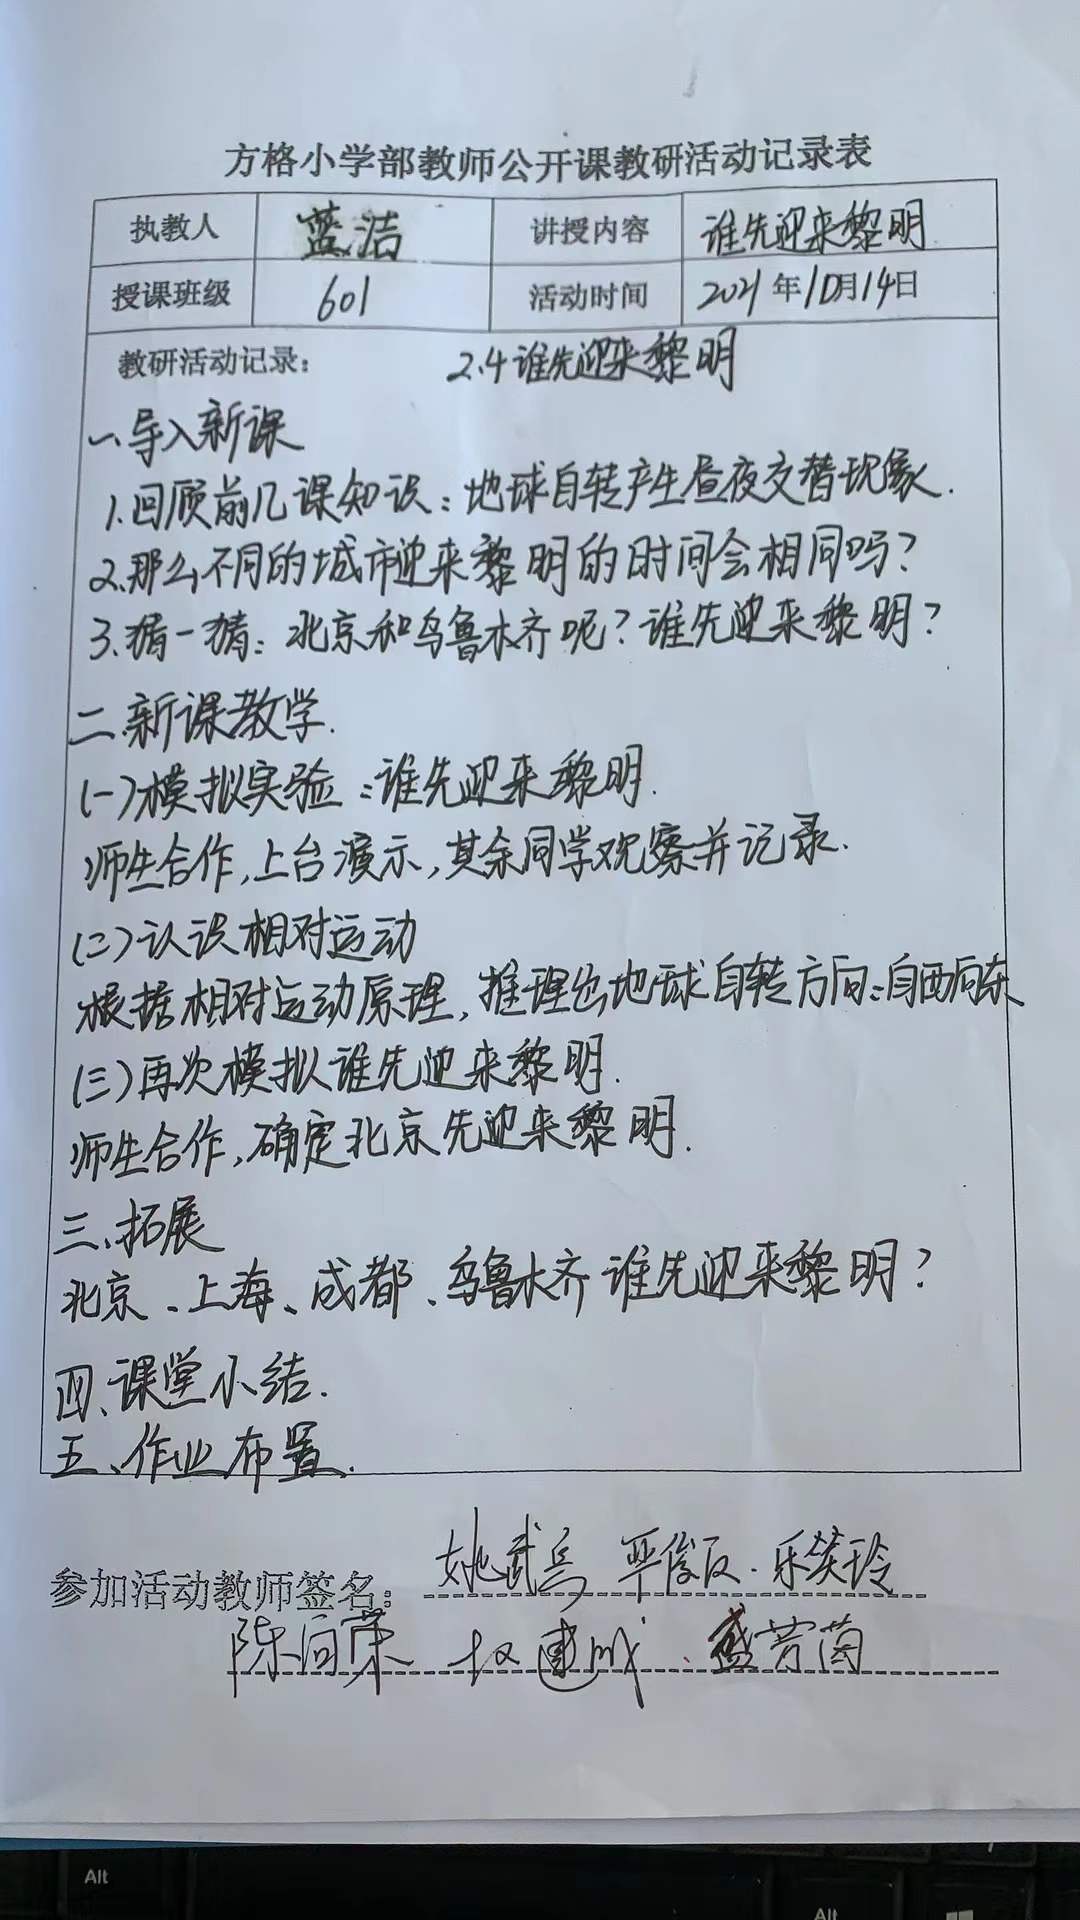 方格小学部教师公开课教研活动记录表
执教人 蓝洁 讲授内容 谁先迎来黎明
授课班级 601 活动时间 2021年10月14日
教研活动记录： 2.4谁先迎来黎明
一、导入新课
1.回顾前几课知识：地球自转产生昼夜交替现象.
2.那么不同的城市迎来黎明的时间会相同吗?
3.猜一猜：北京和乌鲁木齐呢?谁先迎来黎明?
二.新课教学.
(一)模拟实验：谁先迎来黎明.
师生合作,上台演示,其余同学观察并记录.
(二)认识相对运动
根据相对运动原理,推理出地球自转方向：自西向东
(三)再次模拟谁先迎来黎明.
师生合作,确定北京先迎来黎明.
三、拓展
北京、上海、成都、乌鲁木齐谁先迎来黎明?
四、课堂小结.
五、作业布置.
参加活动教师签名： 姚武兵 乐笑玲
盛芳茵
Alt
Alt